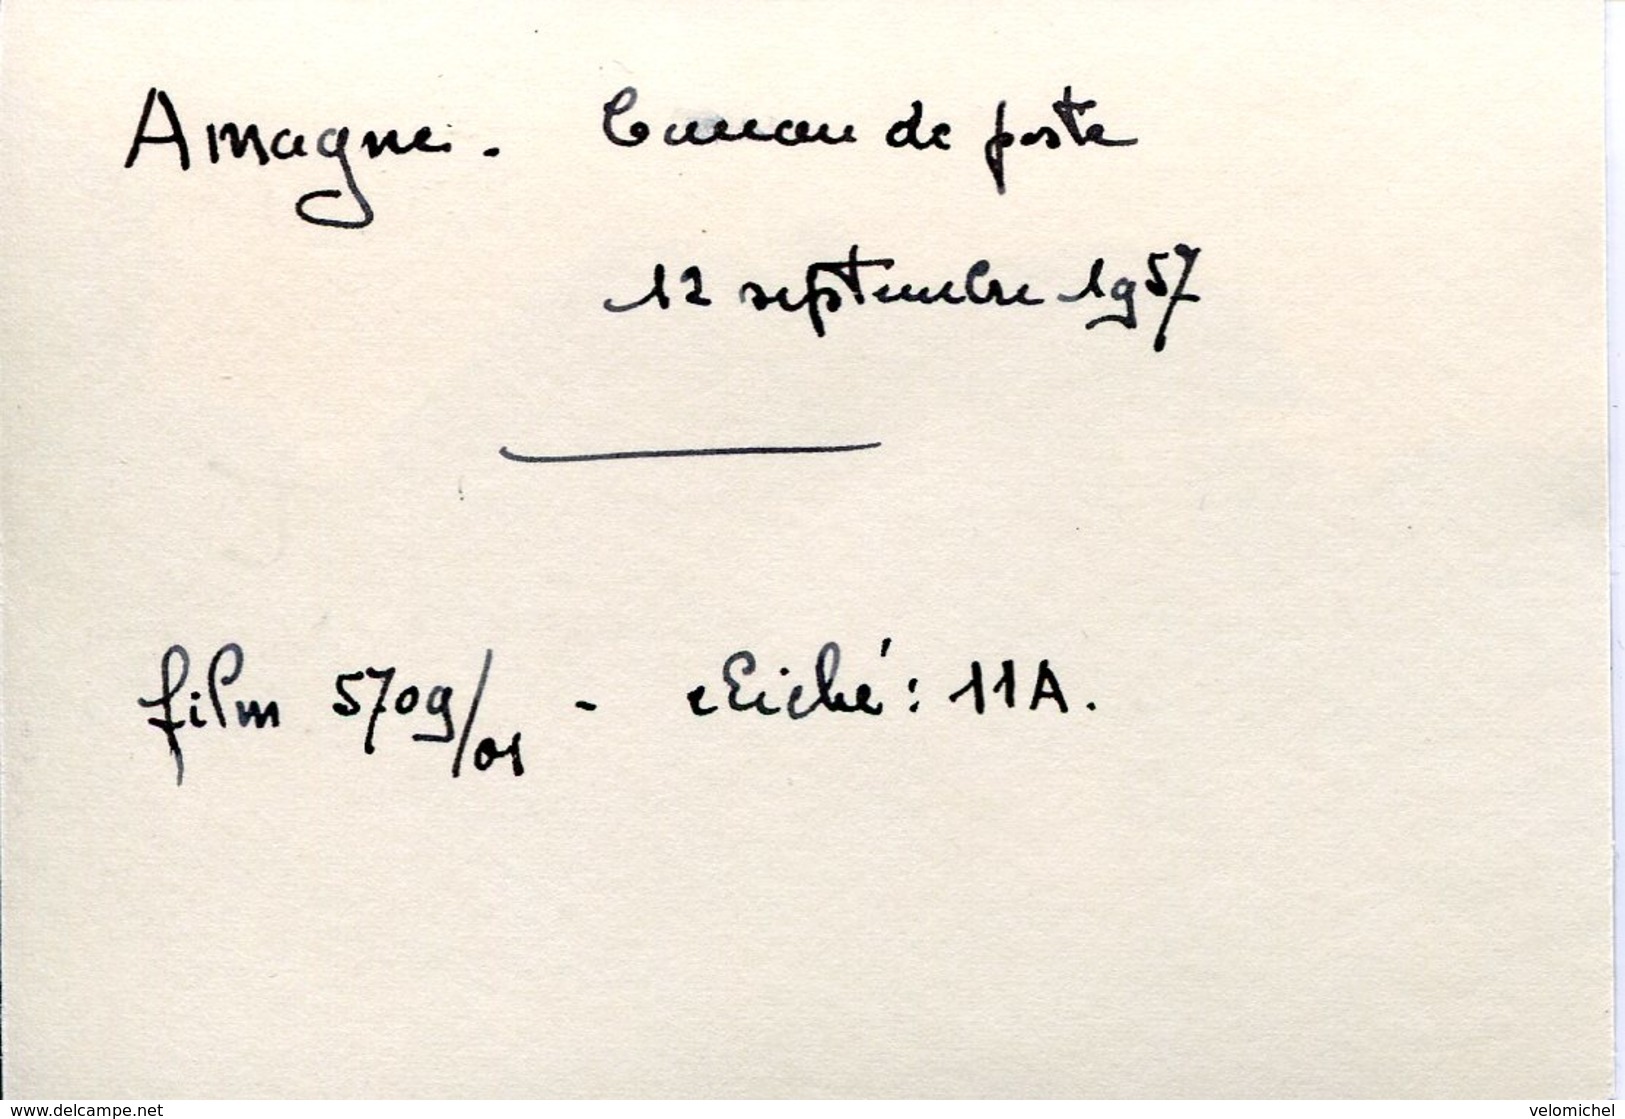 Amagne. Bureau de poste
12 septembre 1957
film 5709/01 - cliché : 11A.
www.delcampe.net velomichel